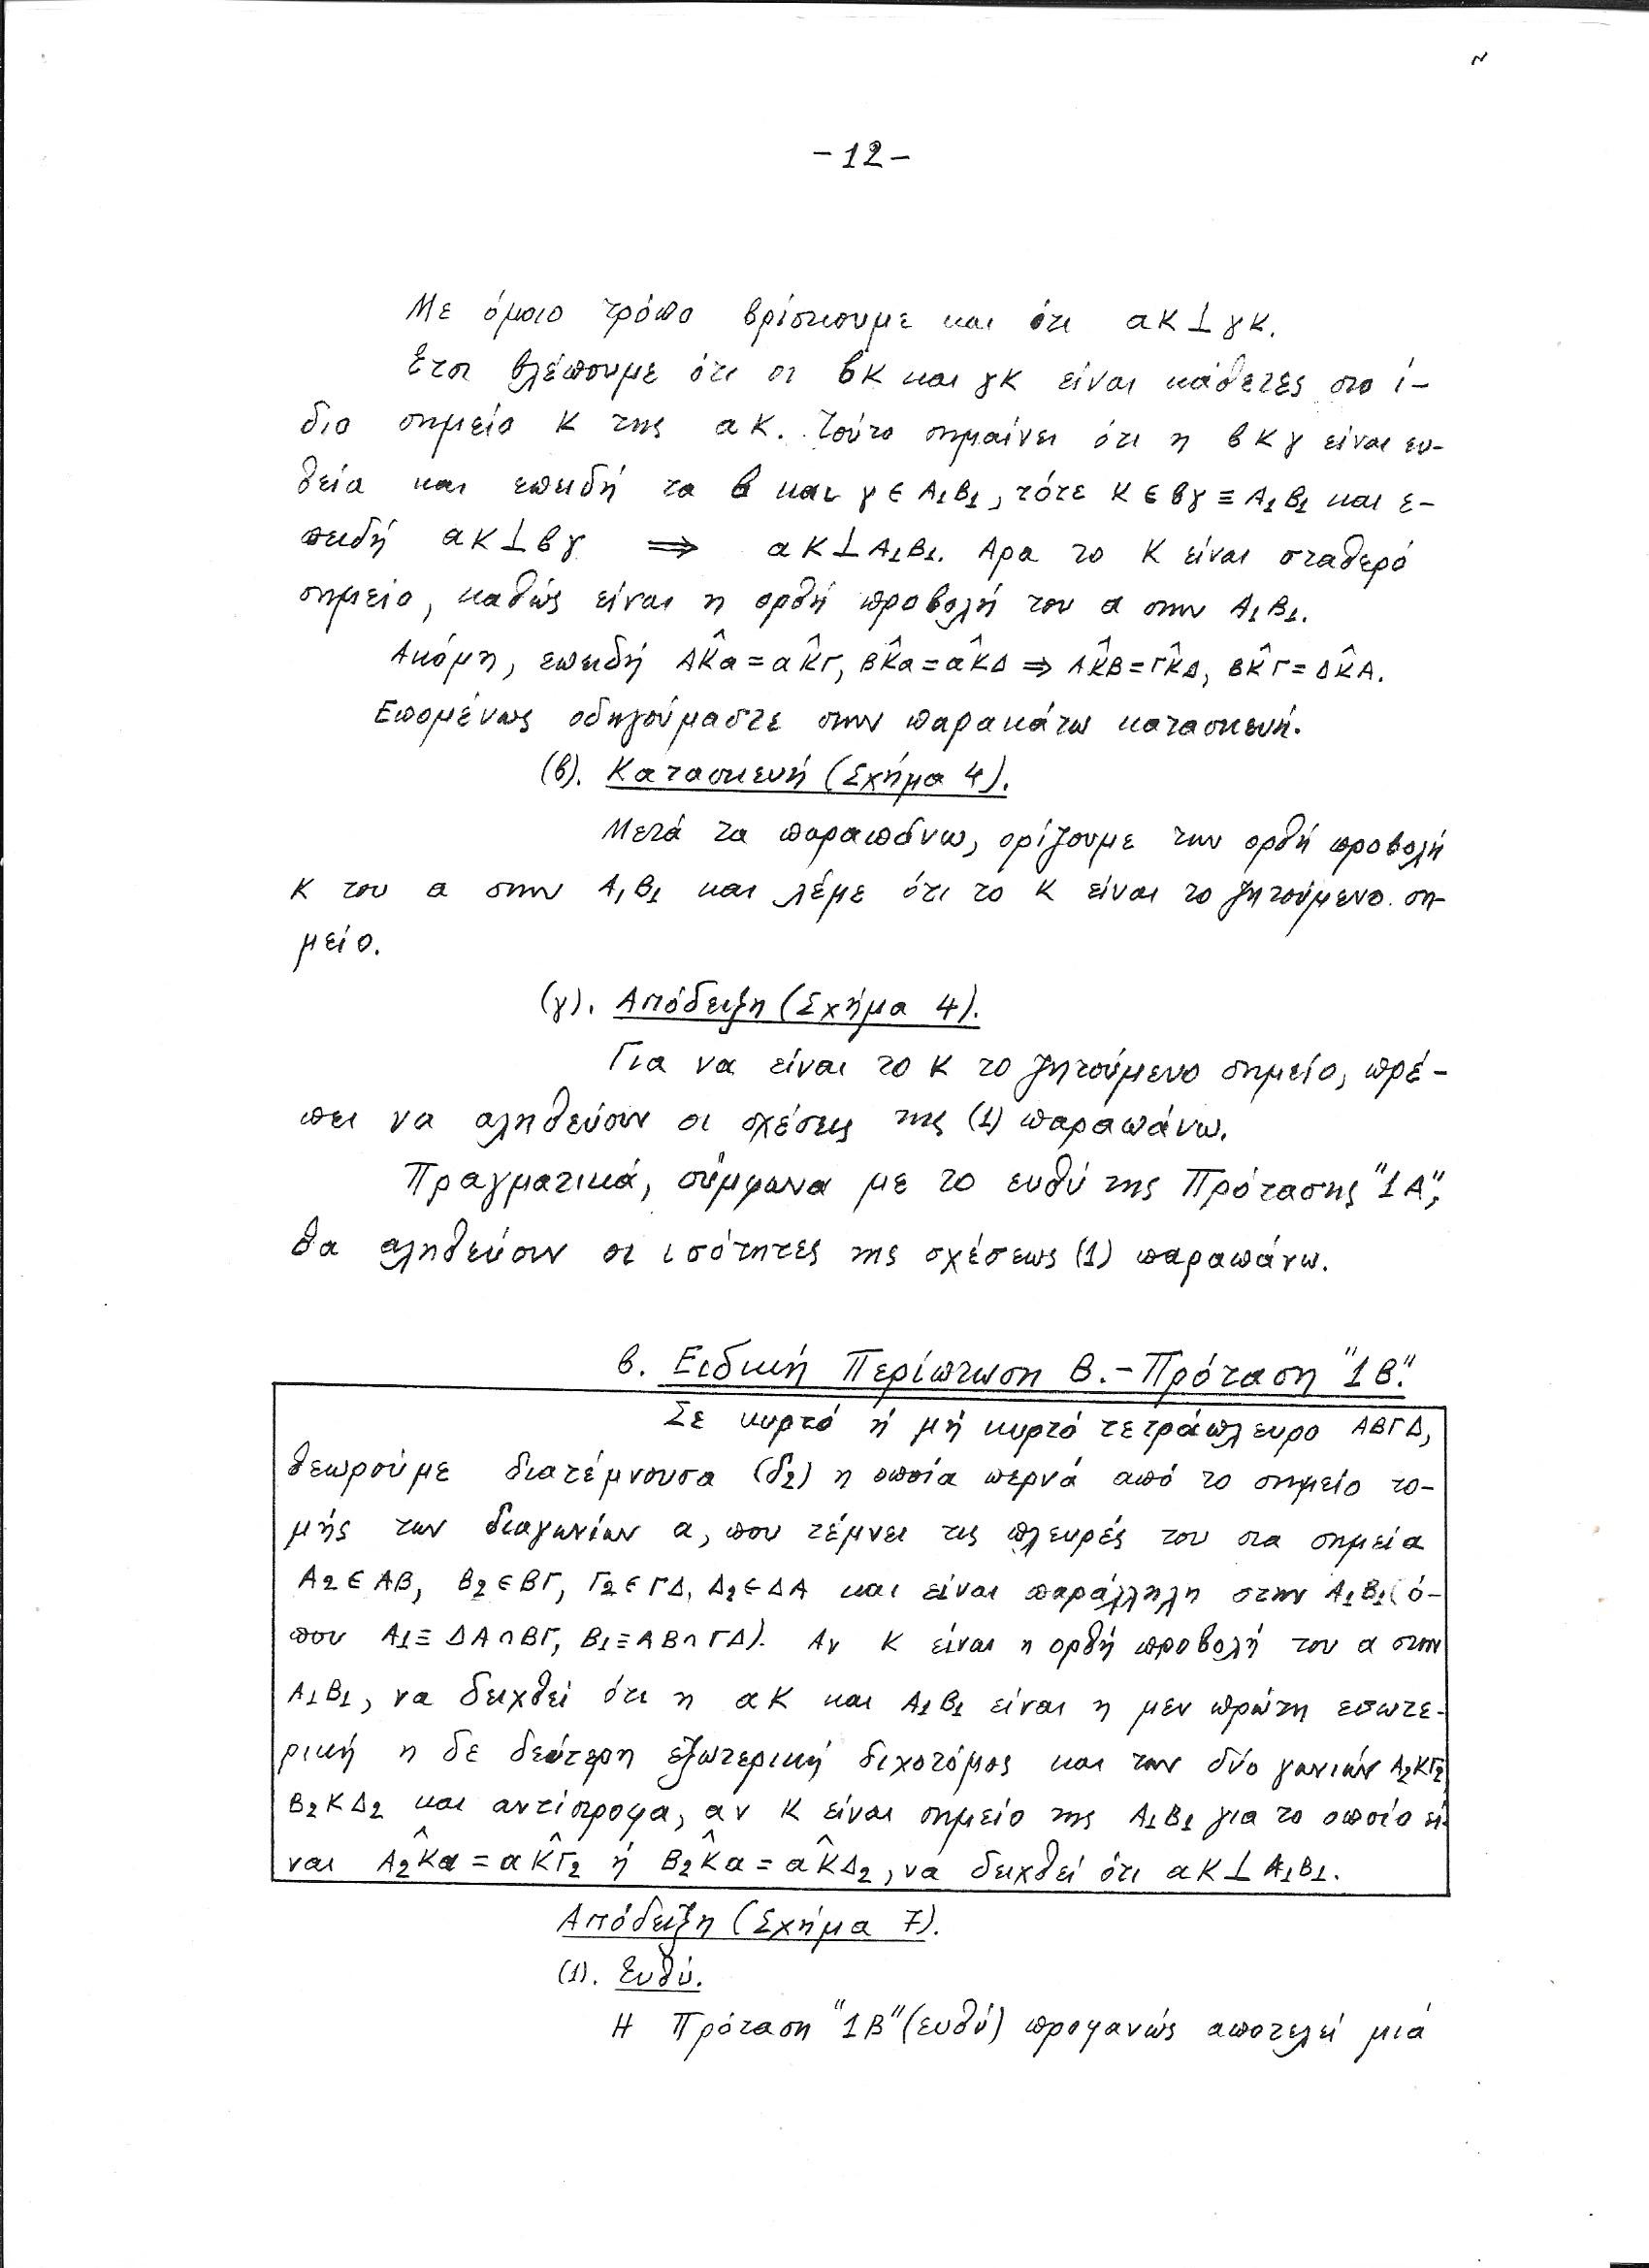 -12-
Με όμοιο τρόπο βρίσκουμε και ότι αΚ⊥γΚ.
Έτσι βλέπουμε ότι οι βΚ και γΚ είναι κάθετες στο ί-
διο σημείο Κ της αΚ. Τούτο σημαίνει ότι η βΚγ είναι ευ-
θεία και επειδή τα β και γ∈Α₁Β₁, τότε Κ∈βγ≡Α₁Β₁ και ε-
πειδή αΚ⊥βγ ⟹ αΚ⊥Α₁Β₁. Άρα το Κ είναι σταθερό
σημείο, καθώς είναι η ορθή προβολή του α στην Α₁Β₁.
Ακόμη, επειδή ΑΚ̂α=αΚ̂Γ, ΒΚ̂α=αΚ̂Δ ⇒ ΑΚ̂Β=ΓΚ̂Δ, ΒΚ̂Γ=ΔΚ̂Α.
Επομένως οδηγούμαστε στην παρακάτω κατασκευή.
(β). Κατασκευή (Σχήμα 4).
Μετά τα παραπάνω, ορίζουμε την ορθή προβολή
Κ του α στην Α₁Β₁ και λέμε ότι το Κ είναι το ζητούμενο ση-
μείο.
(γ). Απόδειξη (Σχήμα 4).
Για να είναι το Κ το ζητούμενο σημείο, πρέ-
πει να αληθεύουν οι σχέσεις της (1) παραπάνω.
Πραγματικά, σύμφωνα με το ευθύ της Πρότασης "1Α",
θα αληθεύουν οι ισότητες της σχέσεως (1) παραπάνω.
β. Ειδική Περίπτωση Β.-Πρόταση "1Β".
Σε κυρτό ή μή κυρτό τετράπλευρο ΑΒΓΔ,
θεωρούμε διατέμνουσα (δ₂) η οποία περνά από το σημείο το-
μής των διαγωνίων α, που τέμνει τις πλευρές του στα σημεία
Α₂∈ΑΒ, Β₂∈ΒΓ, Γ₂∈ΓΔ, Δ₂∈ΔΑ και είναι παράλληλη στην Α₁Β₁(ό-
που Α₁≡ΔΑ∩ΒΓ, Β₁≡ΑΒ∩ΓΔ). Αν Κ είναι η ορθή προβολή του α στην
Α₁Β₁, να δειχθεί ότι η αΚ και Α₁Β₁ είναι η μεν πρώτη εσωτε-
ρική η δε δεύτερη εξωτερική διχοτόμος και των δύο γωνιών Α₂ΚΓ₂,
Β₂ΚΔ₂ και αντίστροφα, αν Κ είναι σημείο της Α₁Β₁ για το οποίο εί-
ναι Α₂Κ̂α=αΚ̂Γ₂ ή Β₂Κ̂α=αΚ̂Δ₂, να δειχθεί ότι αΚ⊥Α₁Β₁.
Απόδειξη (Σχήμα 7).
(1). Ευθύ.
Η Πρόταση "1Β"(ευθύ) προφανώς αποτελεί μιά